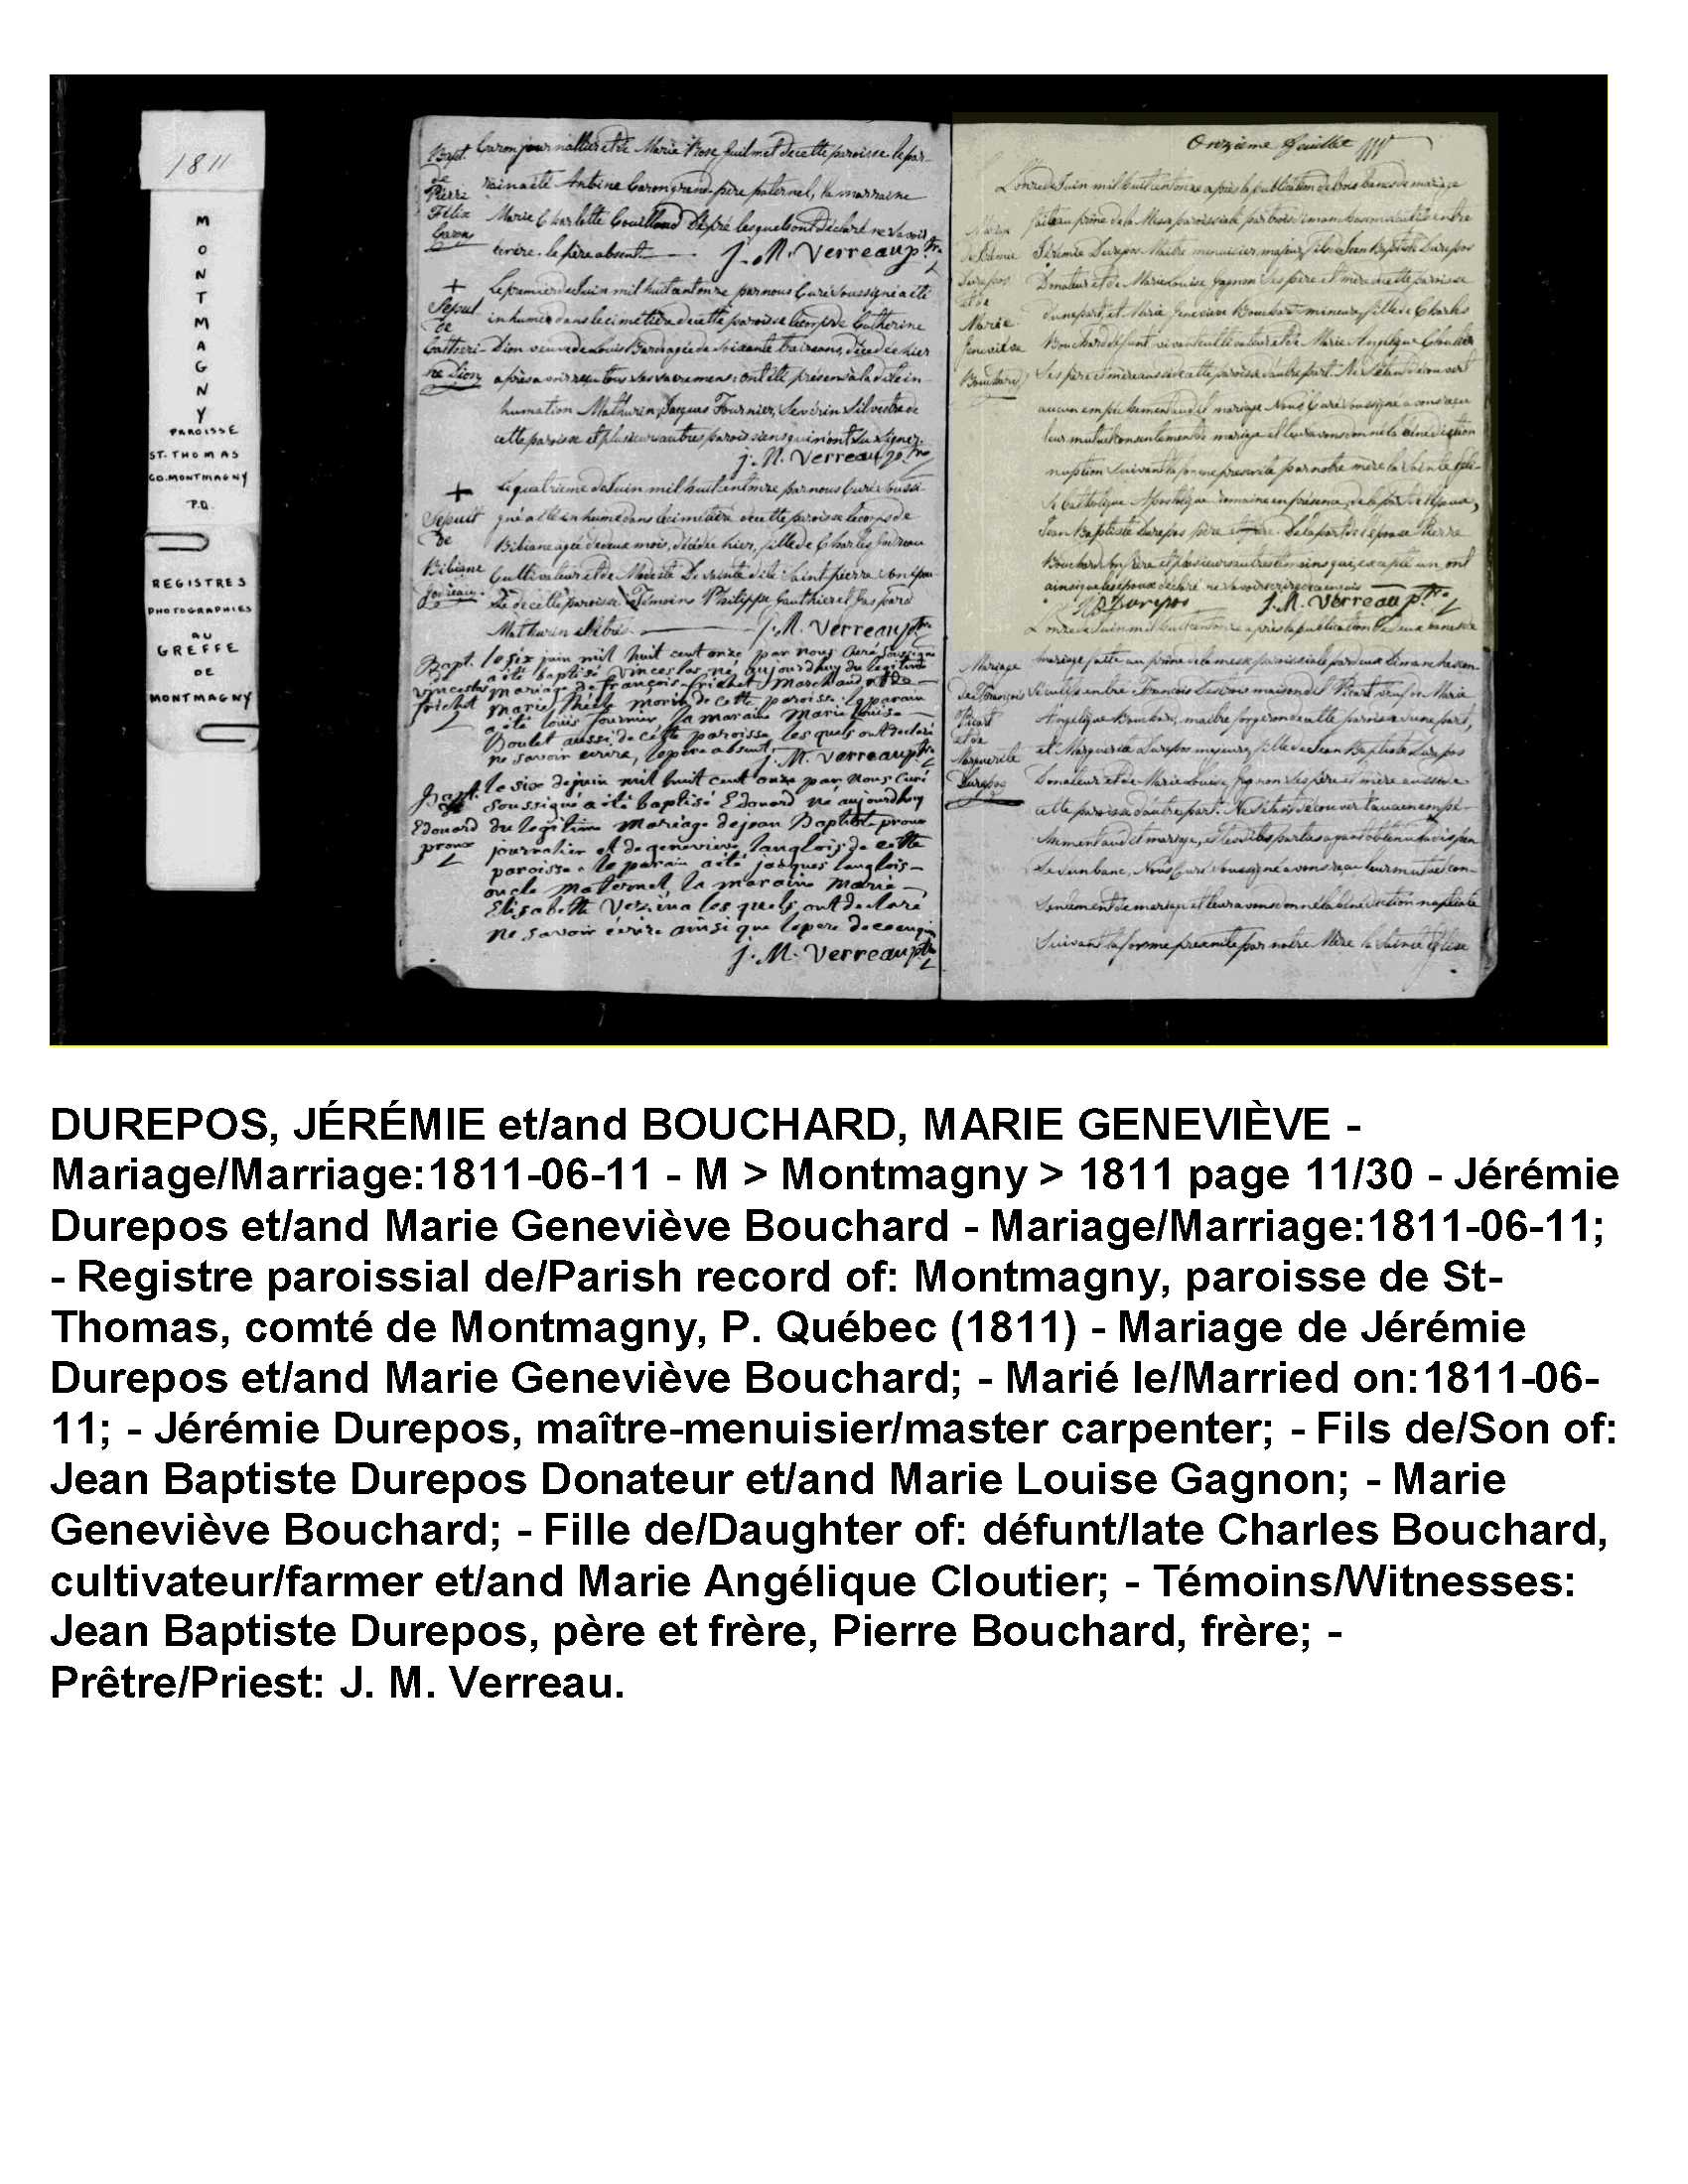 1811
MONTMAGNY
PAROISSE
ST. THOMAS
CO. MONTMAGNY
P.Q.
REGISTRES
PHOTOGRAPHIES
AU
GREFFE
DE
MONTMAGNY
Bapt.
de
Pierre
Félix
Caron
Caron journallier et de Marie Rose Guilmet de cette paroisse le par-
rain a été Antoine Caron grand-père paternel, la marraine
Marie Charlotte Couillard Dépré lesquels ont déclaré ne savoir
écrire. le père absent.
J. M. Verreau ptre
+
Sepul
de
Catheri-
ne Dion
Le premier de Juin mil huit cent onze par nous Curé soussigné a été
inhumé dans le cimetière de cette paroisse le corps de Catherine
Dion veuve de Louis agée de soixante treize ans, décedée hier
après avoir reçu tous les sacremens: ont été présens à la dite in-
humation Mathurin, Jacques Fournier, Sevérin Silvestre de
cette paroisse et plusieurs autres paroissiens qui n'ont su signer.
J. M. Verreau ptre
+
Sepult
de
Bibiane
Le quatrieme de Juin mil huit cent onze par nous Curé soussi-
gné a été inhumé dans le cimetière de cette paroisse le corps de
Bibiane agée de deux mois, décédée hier, fille de Charles
Cultivateur et de Modeste dite Saint-pierre
de cette paroisse. Témoins Philippe Gauthier et Gaspard
Mathurin
J. M. Verreau ptre
Bapt.
de
vinceslas
frichet
le six juin mil huit cent onze par nous Curé soussigné
a été baptisé vinceslas né aujourdhuy du legitime
mariage de françois frichet Marchand et de
Marie Thècle Morin de cette paroisse. le parain
a été louis fournier, la maraine Marie louise
Boulet aussi de cette paroisse les quels ont declaré
ne savoir ecrire, le pere absent.
J. M. Verreau ptre
Bapt.
de
Edouard
proux
le six de juin mil huit cent onze par nous Curé
soussigné a été baptisé Edouard né aujourdhuy
du legitime mariage de jean Baptiste proux
journalier et de genevieve langlois de cette
paroisse. le parain a été jacques langlois
oncle maternel, la maraine Marie
Elisabeth Vezina les quels ont declaré
ne savoir écrire ainsi que le pere de ce enquis
J. M. Verreau ptre
Onzième feuillet
L'onze de Juin mil huit cent onze après la publication de trois bancs de mariage
faite au prône de la Messe paroissiale par trois dimanches consécutifs entre
Jérémie Durepos Maître menuisier, majeur, fils de Jean Baptiste Durepos
Donateur et de Marie Louise Gagnon ses père et mère de cette paroisse
d'une part, et Marie Geneviève Bouchard mineure, fille de Charles
Bouchard défunt vivant cultivateur et de Marie Angélique Cloutier
ses père et mère aussi de cette paroisse d'autre part. Ne s'étant découvert
aucun empêchement au dit mariage Nous Curé soussigné avons reçu
leur mutuel consentement de mariage et leur avons donné la bénédiction
nuptiale suivant la forme prescrite par notre mère la Sainte Egli-
se Catholique Apostolique Romaine en présence, de la part de l'époux,
Jean Baptiste Durepos père et frère. De la part de l'épouse Pierre
Bouchard son frère et plusieurs autres témoins qui, excepté un, ont
ainsi que les époux déclaré ne savoir écrire de ce enquis
Durepos
J. M. Verreau ptre
Mariage
de Jérémie
Durepos
et de
Marie
Geneviève
Bouchard
L'onze de Juin mil huit cent onze après la publication de deux bancs de
mariage faite au prône de la messe paroissiale par deux Dimanches con-
sécutifs entre François Destrois maisons dit Picart veuf de Marie
Angélique Bouchard, maître forgeron de cette paroisse d'une part,
et Marguerite Durepos majeure, fille de Jean Baptiste Durepos
Donateur et de Marie Louise Gagnon ses père et mère aussi de
cette paroisse d'autre part. Ne s'étant découvert aucun empê-
chement au dit mariage, et les dites parties ayant obtenu dispen-
se d'un banc, Nous Curé soussigné avons reçu leur mutuel con-
sentement de mariage et leur avons donné la bénédiction nuptiale
suivant la forme prescrite par notre Mère la Sainte Eglise
Mariage
de François
Picart
et de
Marguerite
Durepos
DUREPOS, JÉRÉMIE et/and BOUCHARD, MARIE GENEVIÈVE -
Mariage/Marriage:1811-06-11 - M > Montmagny > 1811 page 11/30 - Jérémie
Durepos et/and Marie Geneviève Bouchard - Mariage/Marriage:1811-06-11;
- Registre paroissial de/Parish record of: Montmagny, paroisse de St-
Thomas, comté de Montmagny, P. Québec (1811) - Mariage de Jérémie
Durepos et/and Marie Geneviève Bouchard; - Marié le/Married on:1811-06-
11; - Jérémie Durepos, maître-menuisier/master carpenter; - Fils de/Son of:
Jean Baptiste Durepos Donateur et/and Marie Louise Gagnon; - Marie
Geneviève Bouchard; - Fille de/Daughter of: défunt/late Charles Bouchard,
cultivateur/farmer et/and Marie Angélique Cloutier; - Témoins/Witnesses:
Jean Baptiste Durepos, père et frère, Pierre Bouchard, frère; -
Prêtre/Priest: J. M. Verreau.